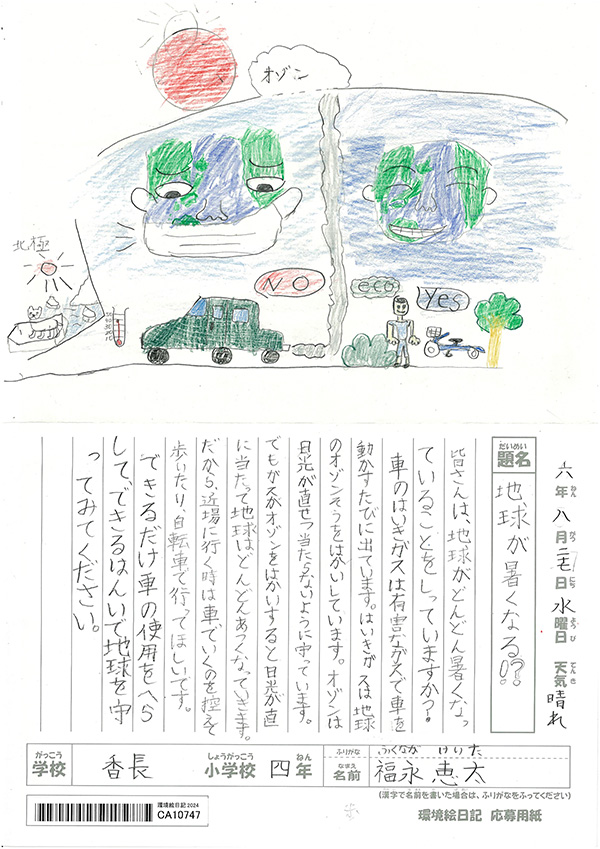 オゾン
北極
NO
eco
Yes
50
40
30
20
10
六年八月二七日水曜日 天気晴れ
ねん がつ にち よう び てん き
だいめい
題名
地球が暑くなる!?
皆さんは、地球がどんどん暑くなっ
ていることをしっていますか?
車のはいきガスは有害ながスで車を
動かすたびに出ています。はいきガスは地球
のオゾンそうをはかいしています。オゾンは
日光が直せつ当たらないように守っています。
でもガスがオゾンをはかいすると日光が直
に当たって地球はどんどんあつくなっていきます。
だから、近場に行く時は車でいくのを控えて
歩いたり、自転車で行ってほしいです。
できるだけ車の使用をへら
して、できるはんいで地球を守
ってみてください。
がっこう
学校
香長
しょうがっこう
小学校
四
ねん
年
ふりがな
ふくなが けいた
なまえ
名前
福永 恵太
(漢字で名前を書いた場合は、ふりがなをふってください)
環境絵日記 2024
CA10747
歩
環境絵日記 応募用紙